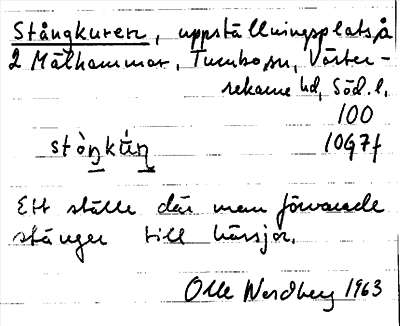 Stångkuren, uppställningsplats å
2 Mälhammar, Tumbo sn, Väster-
rekarne hd, Söd. l.
100
stòŋkúŋ 1097f
Ett ställe där man förvarade
stänger till hässjor.
Olle Nordberg 1963